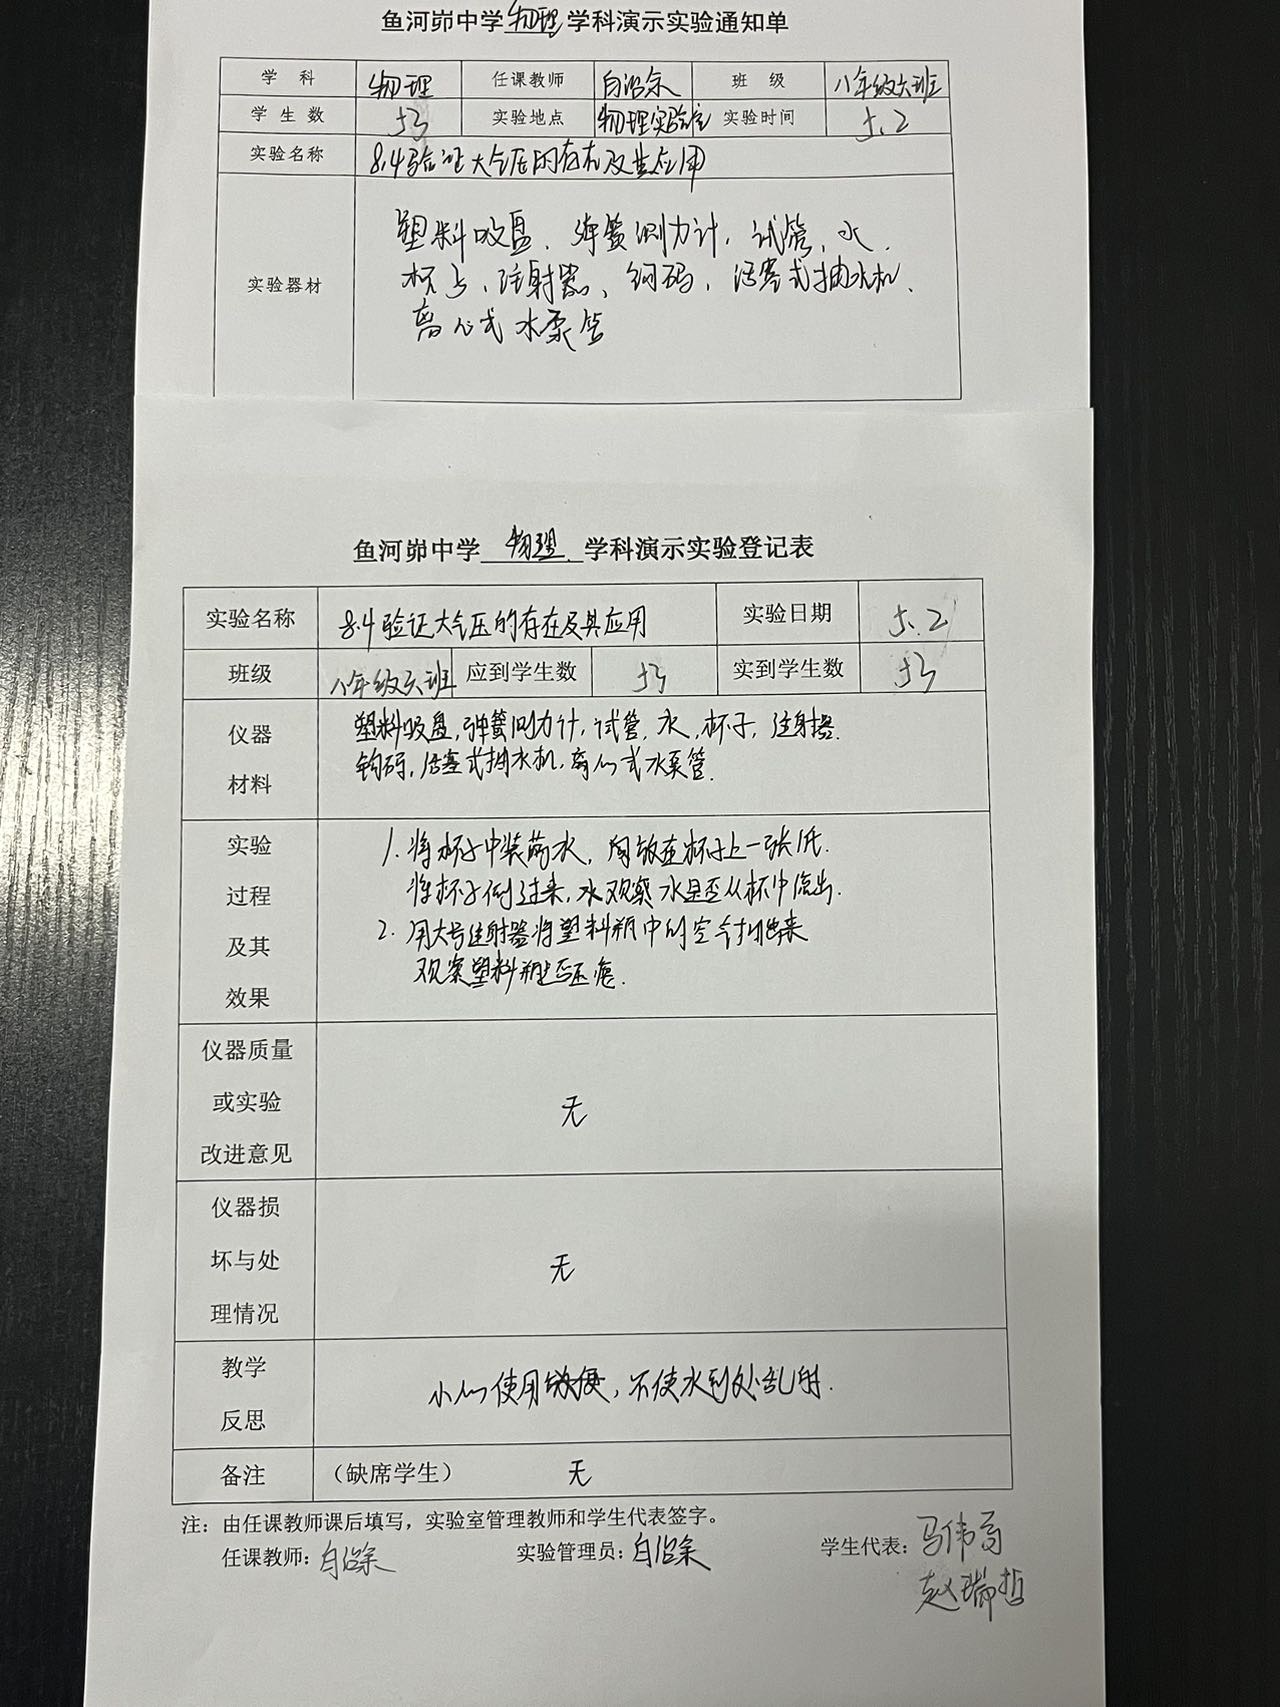 鱼河峁中学物理学科演示实验通知单
学 科 物理 任课教师 白治余 班 级 八年级六班
学 生 数 53 实验地点 物理实验室 实验时间 5.2
实验名称 8.4验证大气压的存在及其应用
实验器材 塑料吸盘、弹簧测力计,试管、水、
杯子、注射器、钩码,活塞式抽水机、
离心式水泵管
鱼河峁中学 物理 学科演示实验登记表
实验名称 8.4验证大气压的存在及其应用 实验日期 5.2
班级 八年级六班 应到学生数 53 实到学生数 53
仪器 塑料吸盘,弹簧测力计,试管,水,杯子,注射器.
材料 钩码,活塞式抽水机,离心式水泵管.
实验 1.将杯子中装满水,用放在杯子上一张纸.
过程 将杯子倒过来,水观察水是否从杯中流出.
及其 2.用大号注射器将塑料瓶中的空气抽出来
效果 观察塑料瓶是否压瘪.
仪器质量
或实验 无
改进意见
仪器损
坏与处 无
理情况
教学 小心使用,不使水到处乱射.
反思
备注 (缺席学生) 无
注:由任课教师课后填写,实验室管理教师和学生代表签字。
任课教师:白治余 实验管理员:白治余 学生代表:马伟
赵瑞哲